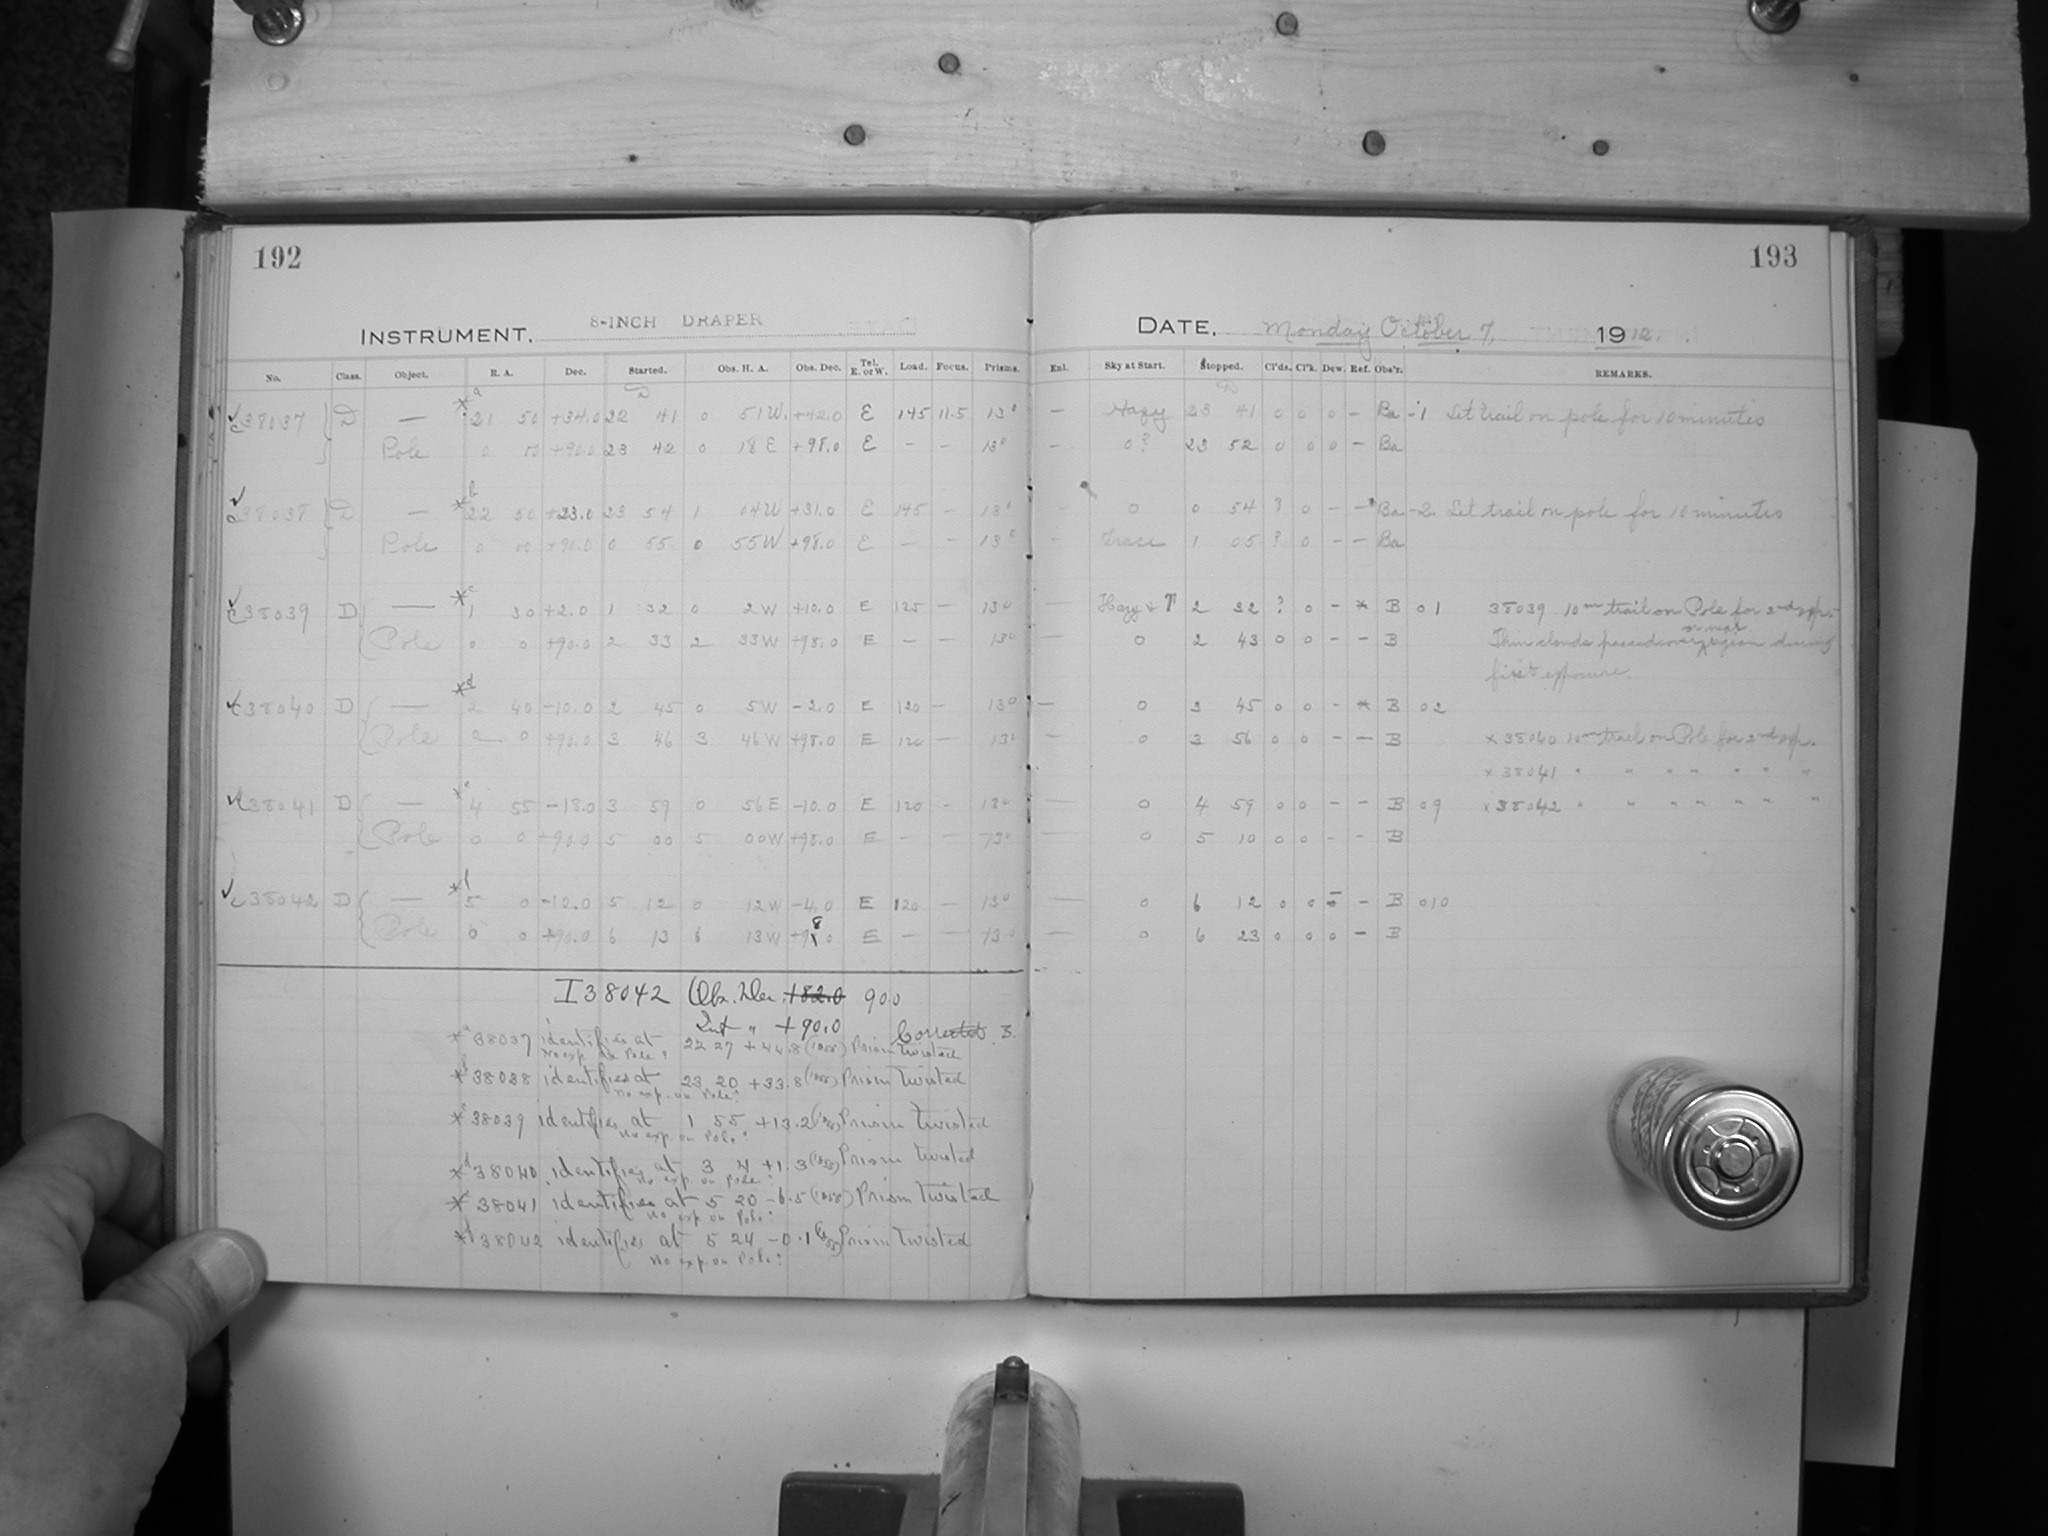 192
193
INSTRUMENT. 8-INCH DRAPER
DATE. Monday October 7, 1912.
No. Class. Object. R. A. Dec. Started. Obs. H. A. Obs. Dec. Tel. E. or W. Load. Focus. Prisms. Enl. Sky at Start. Stopped. Cl'ds. Cl'k. Dew. Ref. Obs'r. REMARKS.
38037 D — *a 21 50 +34.0 22 41 0 51 W. +42.0 E 145 11.5 13° — Hazy 23 41 0 0 0 - Ba -1 Let trail on pole for 10 minutes
Pole 0 00 +90.0 23 42 0 18 E +98.0 E — — 13° — 0? 23 52 0 0 0 - Ba
38038 D — *b 22 50 +23.0 23 54 1 04 W +31.0 E 145 — 13° — 0 0 54 ? 0 - - Ba -2. Let trail on pole for 10 minutes
Pole 0 00 +90.0 0 55 0 55 W +98.0 E — — 13° — Trace 1 05 ? 0 - - Ba
38039 D — *c 1 30 +2.0 1 32 0 2 W +10.0 E 125 — 13° — Hazy & T 2 32 ? 0 - * B 01 38039 10m trail on Pole for 2nd exp.
Pole 0 0 +90.0 2 33 2 33 W +98.0 E — — 13° — 0 2 43 0 0 - - B Thin clouds passed over or near region during
first exposure.
38040 D — *d 2 40 -10.0 2 45 0 5 W -2.0 E 120 — 13° — 0 3 45 0 0 - * B 02
Pole 0 0 +90.0 3 46 3 46 W +98.0 E 120 — 13° — 0 3 56 0 0 - - B x 38040 10m trail on Pole for 2nd exp.
x 38041 " " " " " " "
38041 D — *e 4 55 -18.0 3 59 0 56 E -10.0 E 120 — 13° — 0 4 59 0 0 - - B 09 x 38042 " " " " " " "
Pole 0 0 +90.0 5 00 5 00 W +98.0 E — — 13° — 0 5 10 0 0 - - B
38042 D — *f 5 0 5 12 0 12 W -4.0 E 120 — 13° — 0 6 12 0 0 0 - B 010
Pole 0 0 +90.0 6 13 6 13 W +98.0 E — — 13° — 0 6 23 0 0 0 - B
I 38042 Obs. Dec. +82.0 90.0
" +90.0 Corrected B.
*a 38037 identifies at 22 27 +44.8 Prism twisted
No exp. on Pole?
*b 38038 identifies at 23 20 +33.8 Prism twisted
No exp. on Pole?
*c 38039 identifies at 1 55 +13.2 Prism twisted
No exp. on Pole?
*d 38040 identifies at 3 4 +1.3 Prism twisted
No exp. on Pole?
*e 38041 identifies at 5 20 -6.5 Prism twisted
No exp. on Pole?
*f 38042 identifies at 5 24 -0.1 Prism twisted
No exp. on Pole?